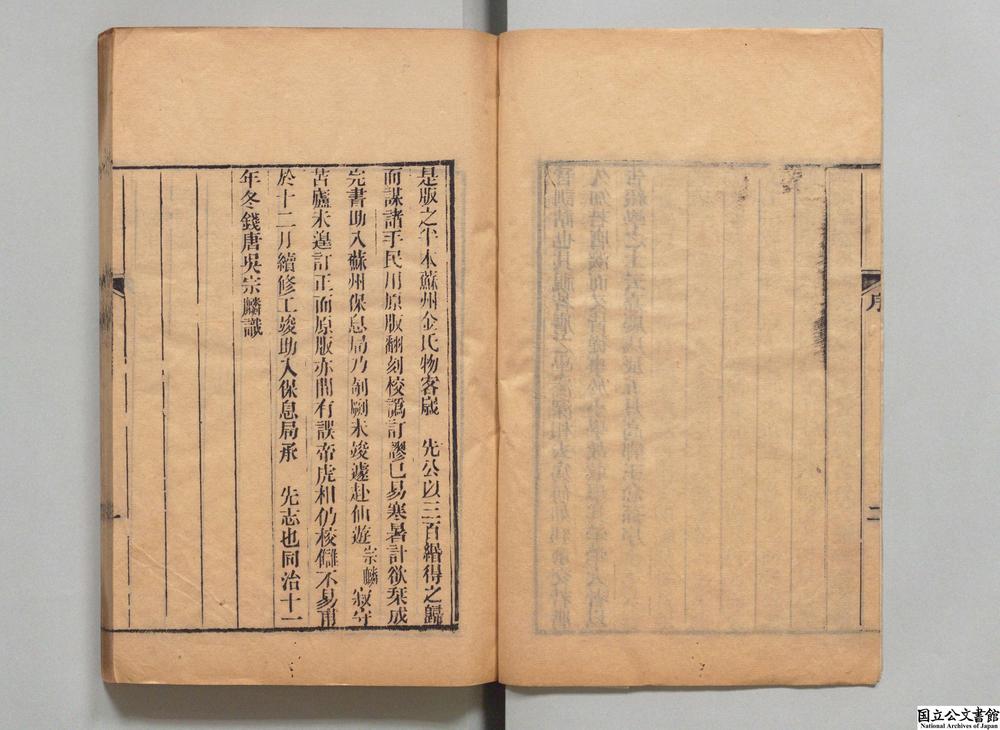 序
二
是版之半本蘇州金氏物客歲 先公以三百緡得之歸
而謀諸手民用原版翻刻校譌訂謬已易寒暑計欲栞成
完書助入蘇州保息局乃剞劂未竣遽赴仙遊宗麟寂守
苫廬未遑訂正而原版亦間有誤帝虎相仍校讎不易甫
於十二月續修工竣助入保息局承 先志也同治十一
年冬錢唐吳宗麟識
国立公文書館
National Archives of Japan